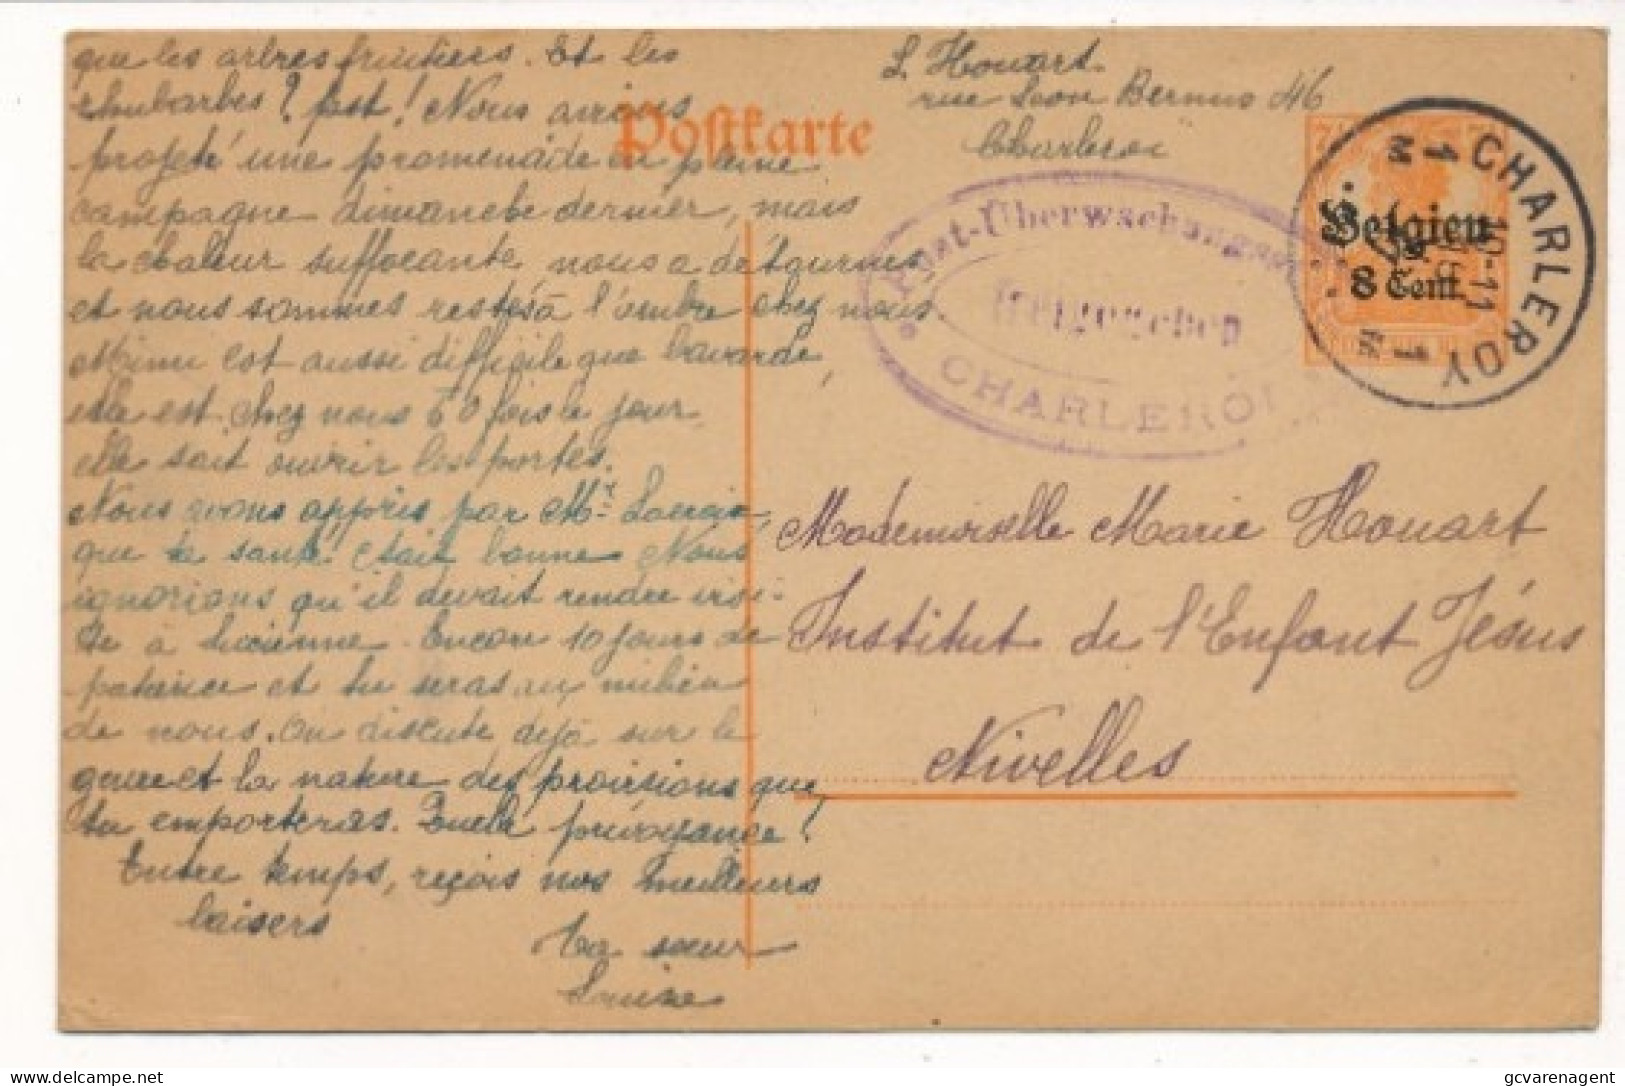 que les arbres fruitiers. Et les
rhubarbes? pst! Nous avions
projeté une promenade en pleine
campagne dimanche dernier, mais
la chaleur suffocante nous a détournés
et nous sommes restés à l'ombre chez nous
Mimi est aussi difficile que bavarde,
elle est chez nous 60 fois le jour
elle sait ouvrir les portes.
Nous avons appris par Mr. Lacroix,
que ta santé était bonne. Nous
ignorions qu'il devait rendre visi-
te à Lucienne. Encore 10 jours de
patience et tu seras au milieu
de nous. On discute déjà sur le
genre et la nature des provisions que
tu emporteras. Quelle prévoyance!
Entre temps, reçois nos meilleurs
baisers
Ta sœur
Louise
L. Houart
rue Léon Bernus 46
Charleroi
Postkarte
Post-Überwachungs
Freigegeben
CHARLEROI
Belgien
8 Cent.
CHARLEROY
1
M
10-11
CHARLEROY
1
Mademoiselle Marie Houart
Institut de l'Enfant Jésus
Nivelles
gcvarenagent